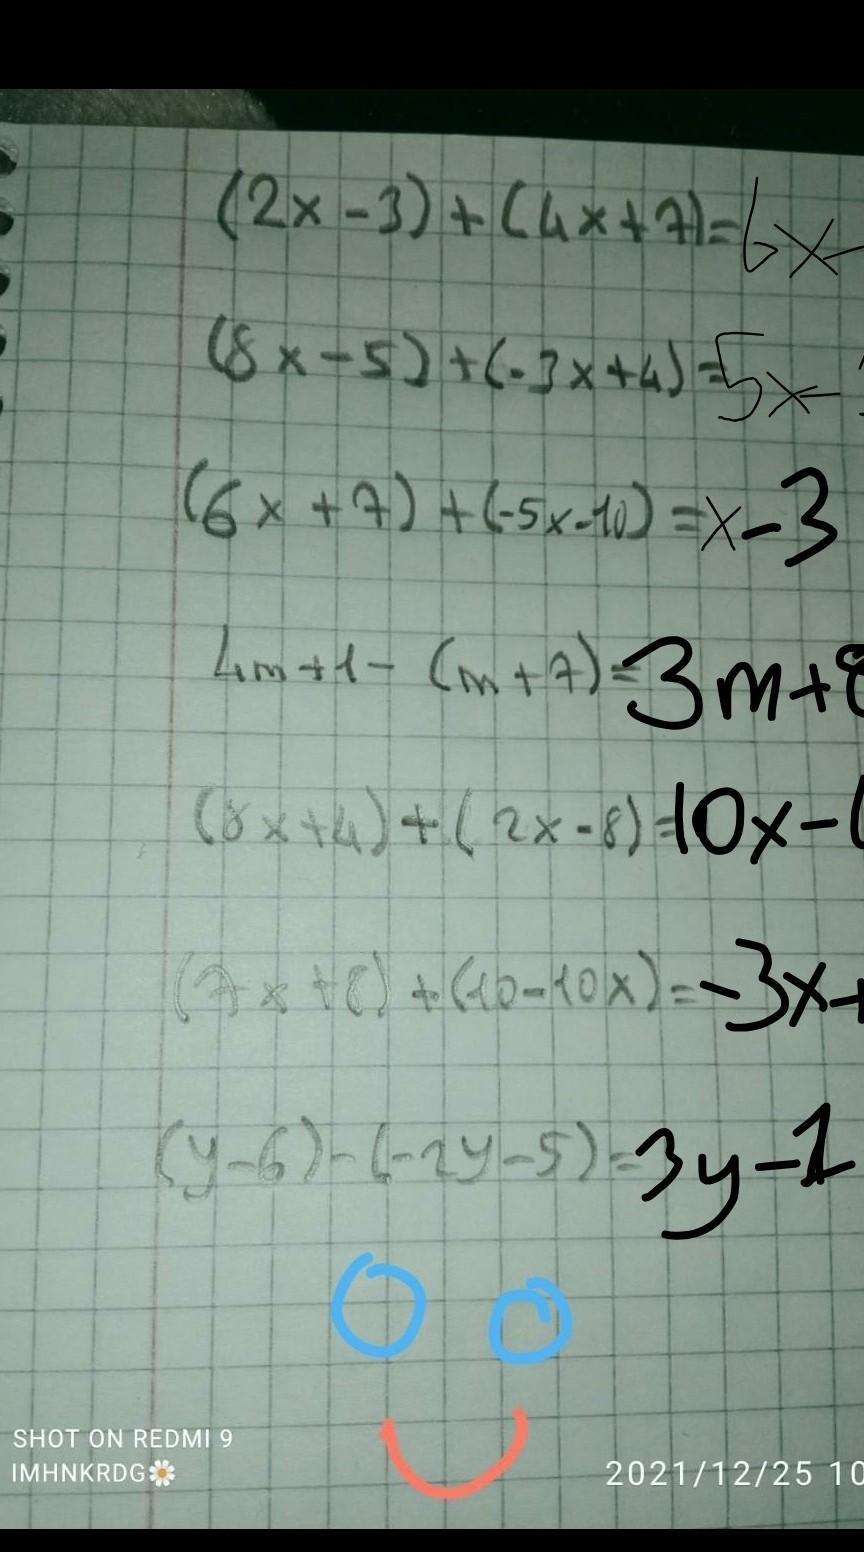 (2x-3)+(4x+7)=6x-
(8x-5)+(-3x+4)=5x-
(6x+7)+(-5x-10)=x-3
4m+1-(m+7)=3m+8
(8x+4)+(2x-8)=10x-
(7x+8)+(10-10x)=-3x+
(y-6)-(-2y-5)=3y-1
SHOT ON REDMI 9
IMHNKRDG🌼
2021/12/25 10